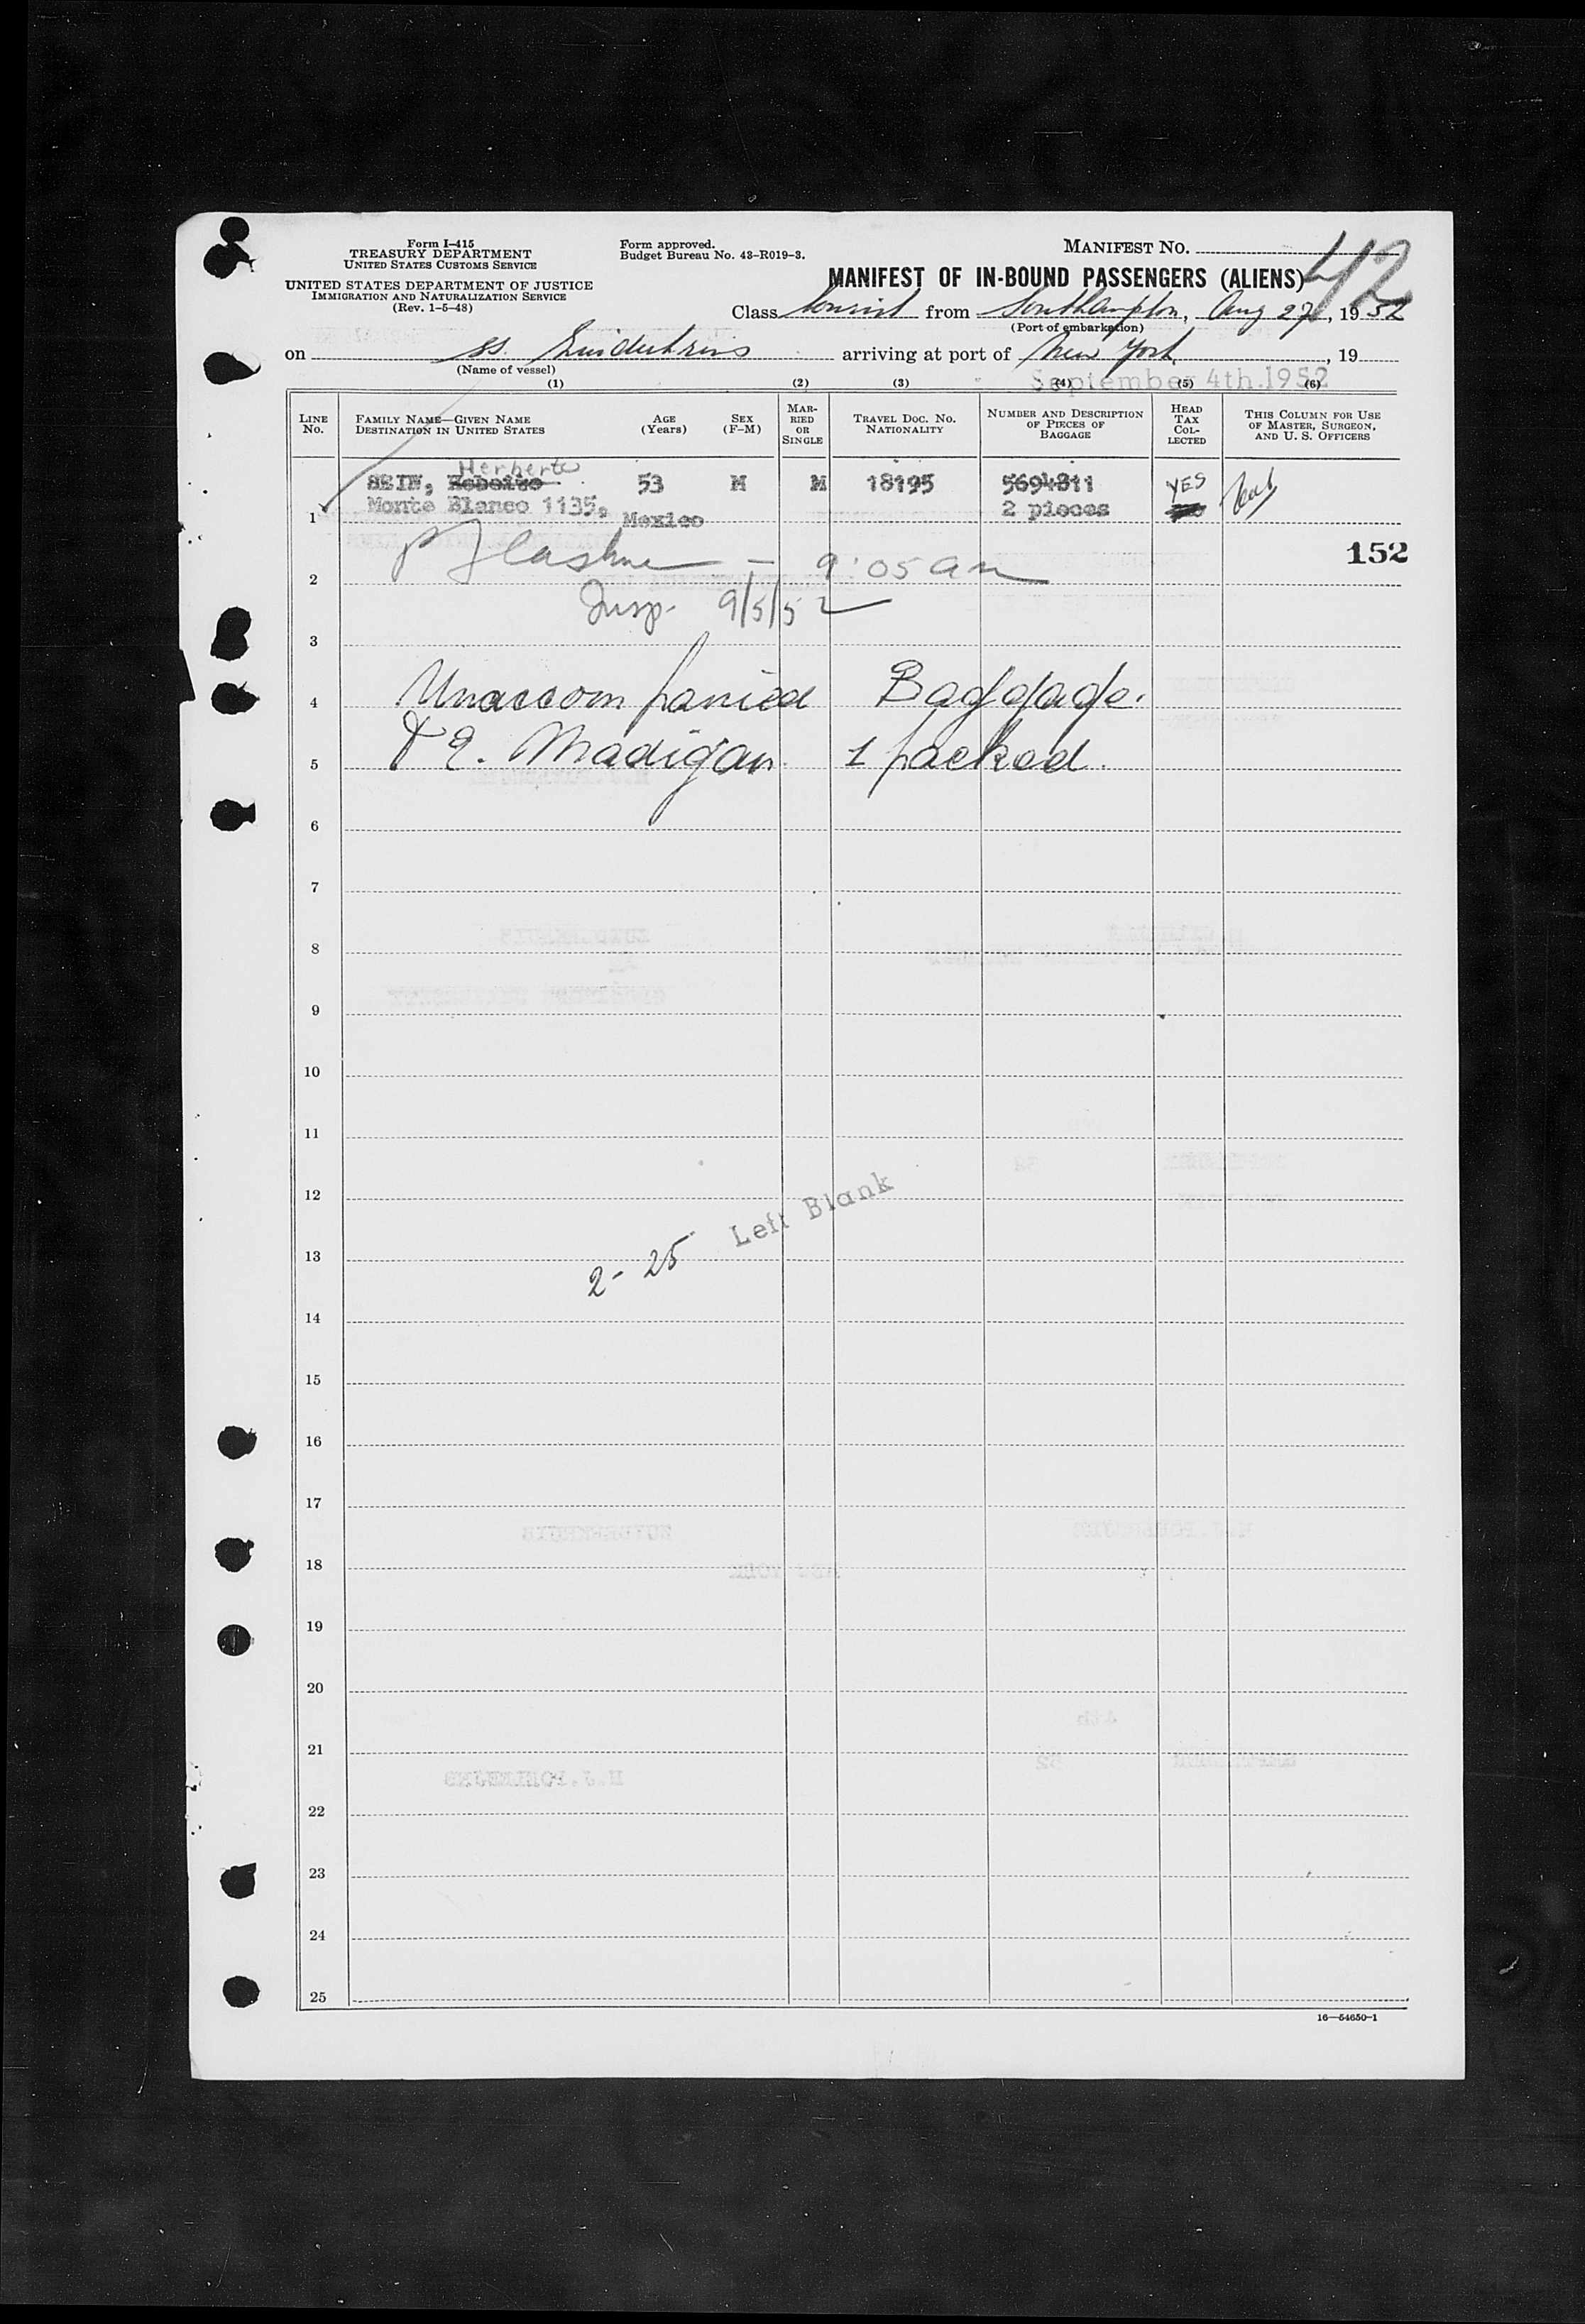 Form I-415
TREASURY DEPARTMENT
UNITED STATES CUSTOMS SERVICE
UNITED STATES DEPARTMENT OF JUSTICE
IMMIGRATION AND NATURALIZATION SERVICE
(Rev. 1-5-48)
Form approved.
Budget Bureau No. 43-R019-3.
MANIFEST NO. 42
MANIFEST OF IN-BOUND PASSENGERS (ALIENS)
Class tourist from Southampton, Aug 27, 1952
(Port of embarkation)
on ss. Zuiderkruis arriving at port of New York, 19
(Name of vessel)
September 4th.1952
(1) (2) (3) (4) (5) (6)
LINE No. FAMILY NAME—GIVEN NAME DESTINATION IN UNITED STATES AGE (Years) SEX (F-M) MARRIED OR SINGLE TRAVEL DOC. NO. NATIONALITY NUMBER AND DESCRIPTION OF PIECES OF BAGGAGE HEAD TAX COLLECTED THIS COLUMN FOR USE OF MASTER, SURGEON, AND U. S. OFFICERS
Herberto
1 SEIN, 53 M M 18195 5694811 YES
Monte Blanco 1135, Mexico 2 pieces
152
2 — 9:05 am
Insp. 9/5/52
3
4 Unaccompanied Baggage.
5 Madigan 1 packed.
6
7
8
9
10
11
12 Left Blank
13 2-25
14
15
16
17
18
19
20
21
22
23
24
25
16—54650-1